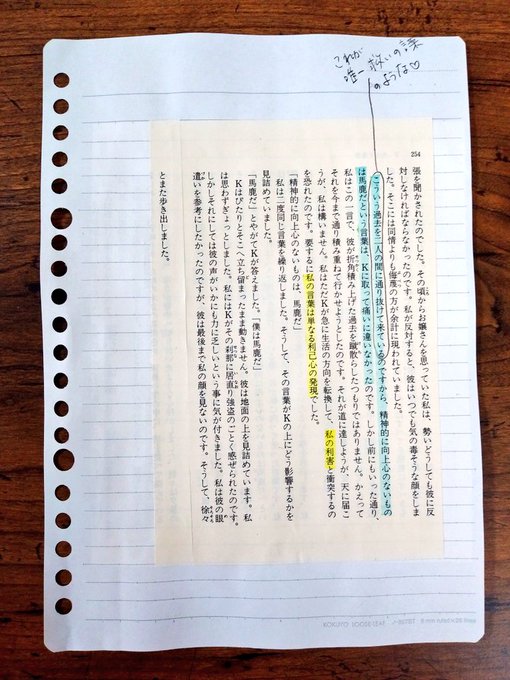 これが
唯一救いの言葉
のような♡
254
張を聞かされたのでした。その頃からお嬢さんを思っていた私は、勢いどうしても彼に反
対しなければならなかったのです。私が反対すると、彼はいつでも気の毒そうな顔をしま
した。そこには同情よりも侮蔑の方が余計に現われていました。
こういう過去を二人の間に通り抜けて来ているのですから、精神的に向上心のないもの
は馬鹿だという言葉は、Kに取って痛いに違いなかったのです。しかし前にもいった通り、
私はこの一言で、彼が折角積み上げた過去を蹴散らしたつもりではありません。かえって
それを今まで通り積み重ねて行かせようとしたのです。それが道に達しようが、天に届こ
うが、私は構いません。私はただKが急に生活の方向を転換して、私の利害と衝突するの
を恐れたのです。要するに私の言葉は単なる利己心の発現でした。
「精神的に向上心のないものは、馬鹿だ」
私は二度同じ言葉を繰り返しました。そうして、その言葉がKの上にどう影響するかを
見詰めていました。
「馬鹿だ」とやがてKが答えました。「僕は馬鹿だ」
Kはぴたりとそこへ立ち留まったまま動きません。彼は地面の上を見詰めています。私
は思わずぎょっとしました。私にはKがその刹那に居直り強盗のごとく感ぜられたのです。
しかしそれにしては彼の声がいかにも力に乏しいという事に気が付きました。私は彼の眼
遣いを参考にしたかったのですが、彼は最後まで私の顔を見ないのです。そうして、徐々
とまた歩き出しました。
KOKUYO LOOSE-LEAF
6 mm ruled